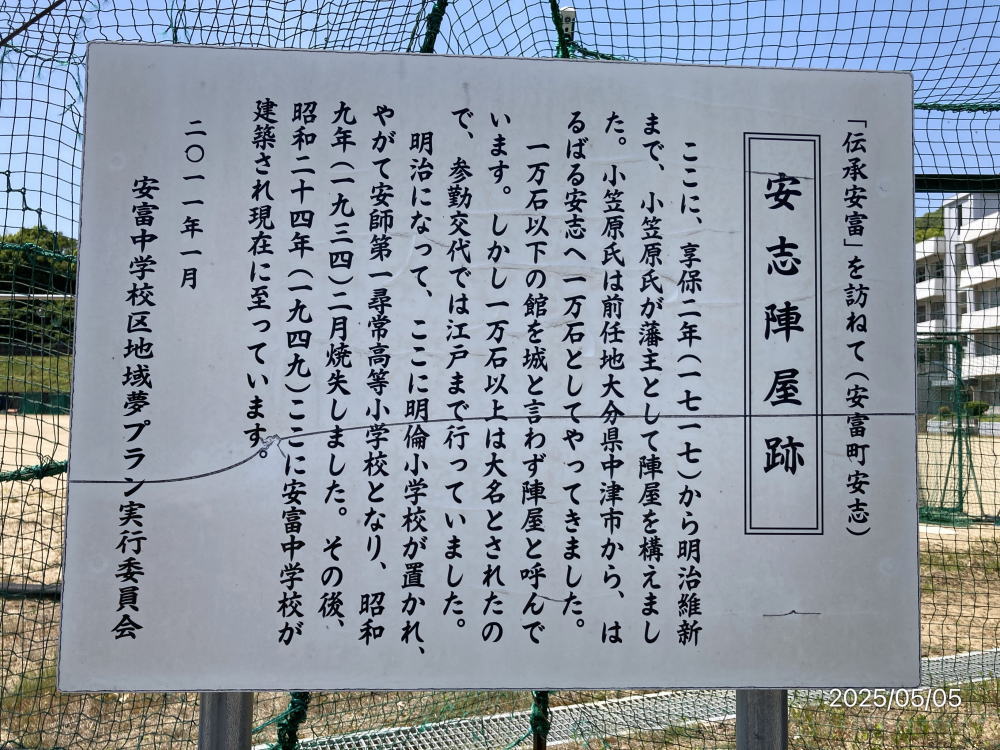 「伝承安富」を訪ねて（安富町安志）
安志陣屋跡
ここに、享保二年（一七一七）から明治維新
まで、小笠原氏が藩主として陣屋を構えまし
た。小笠原氏は前任地大分県中津市から、は
るばる安志へ一万石としてやってきました。
一万石以下の館を城と言わず陣屋と呼んで
います。しかし一万石以上は大名とされたの
で、参勤交代では江戸まで行っていました。
明治になって、ここに明倫小学校が置かれ、
やがて安師第一尋常高等小学校となり、昭和
九年（一九三四）二月焼失しました。その後、
昭和二十四年（一九四九）ここに安富中学校が
建築され現在に至っています。
二〇一一年一月
安富中学校区地域夢プラン実行委員会
2025/05/05